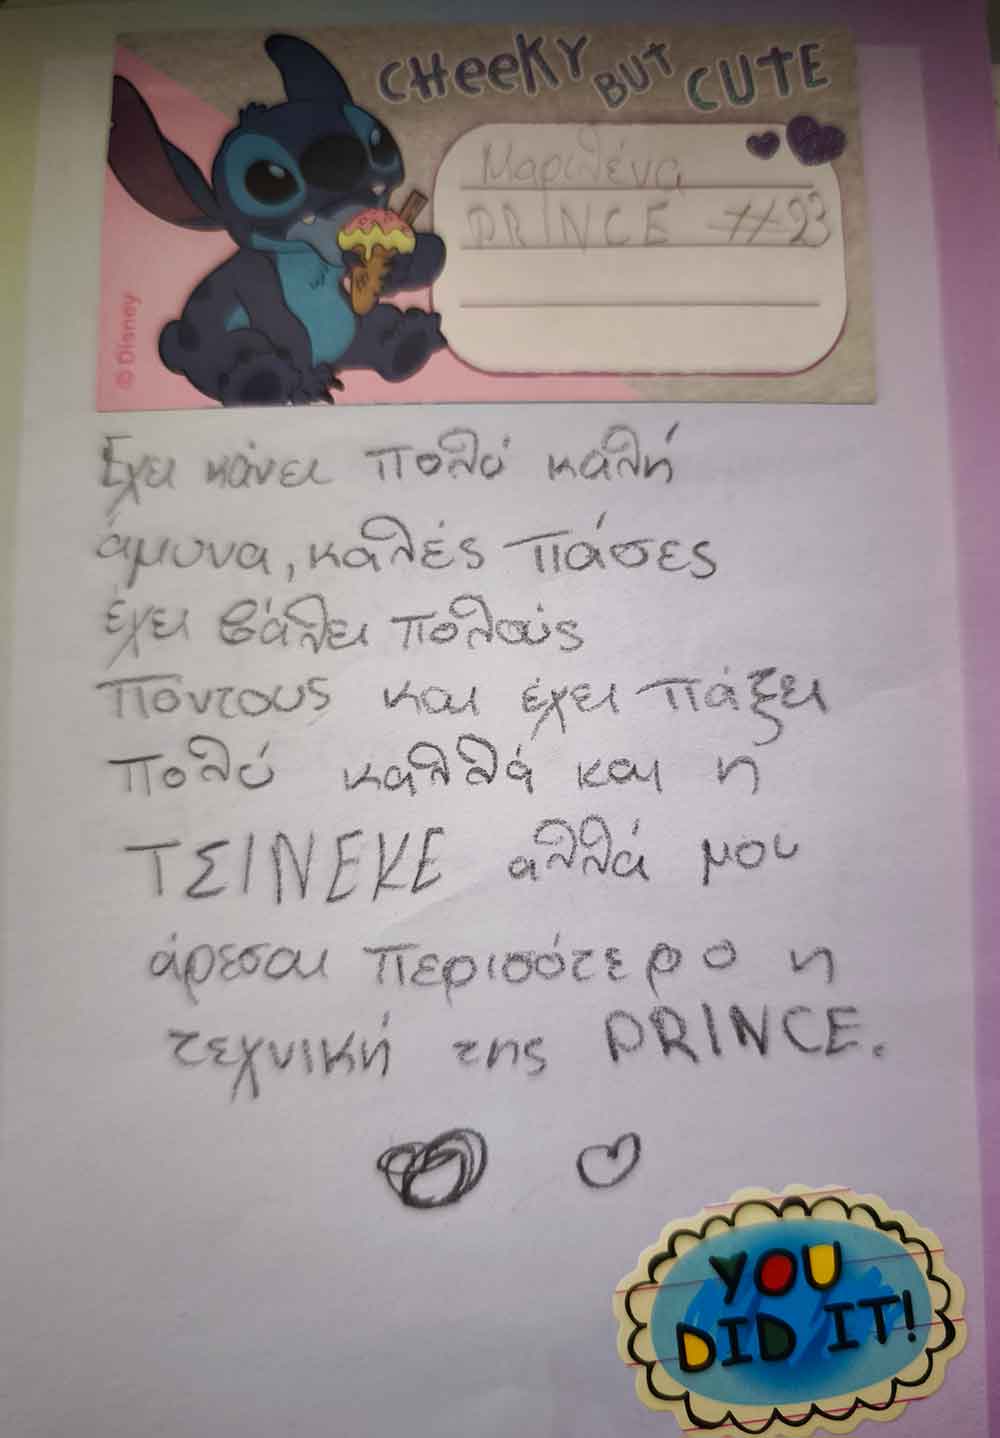 CHEEKY BUT CUTE
Μαριλένα
PRINCE #23
© Disney
Έχει κάνει πολύ καλή
άμυνα, καλές πάσες
έχει βάλει πολούς
πόντους και έχει πάξει
πολύ καλλά και η
ΤΣΙΝΕΚΕ αλλά μου
άρεσαι περισότερο η
τεχνική της PRINCE.
YOU
DID IT!